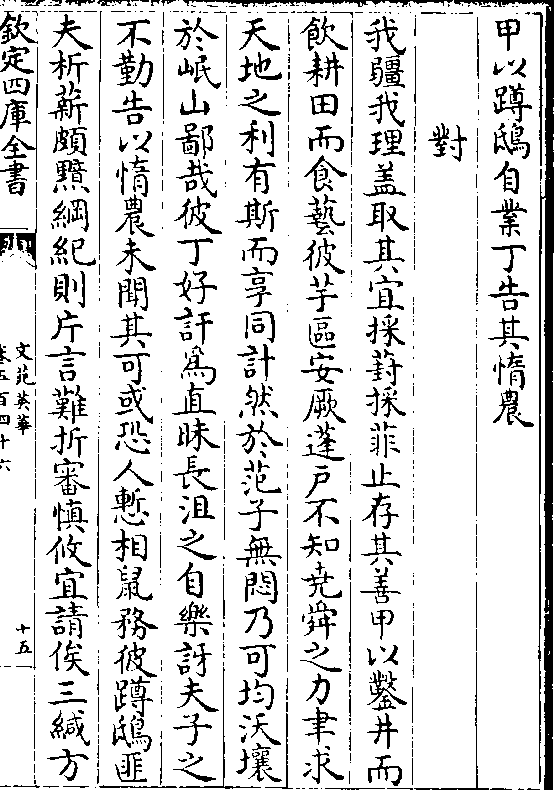 甲以蹲鴟自業丁告其惰農
對
我疆我理盖取其宜採葑採菲止存其善甲以鑿井而
飲耕田而食藝彼芋區安厥蓬户不知尭舜之力聿求
天地之利有斯而享同計然於范子無悶乃可均沃壤
於岷山鄙哉彼丁好訐為直昧長沮之自樂訝夫子之
不勤告以惰農未聞其可或恐人慙相䑕務彼蹲鴟匪
夫析薪頗黷綱紀則片言難折審慎攸宜請俟三緘方
欽定四庫全書
文苑英華
卷五百四十六
十五